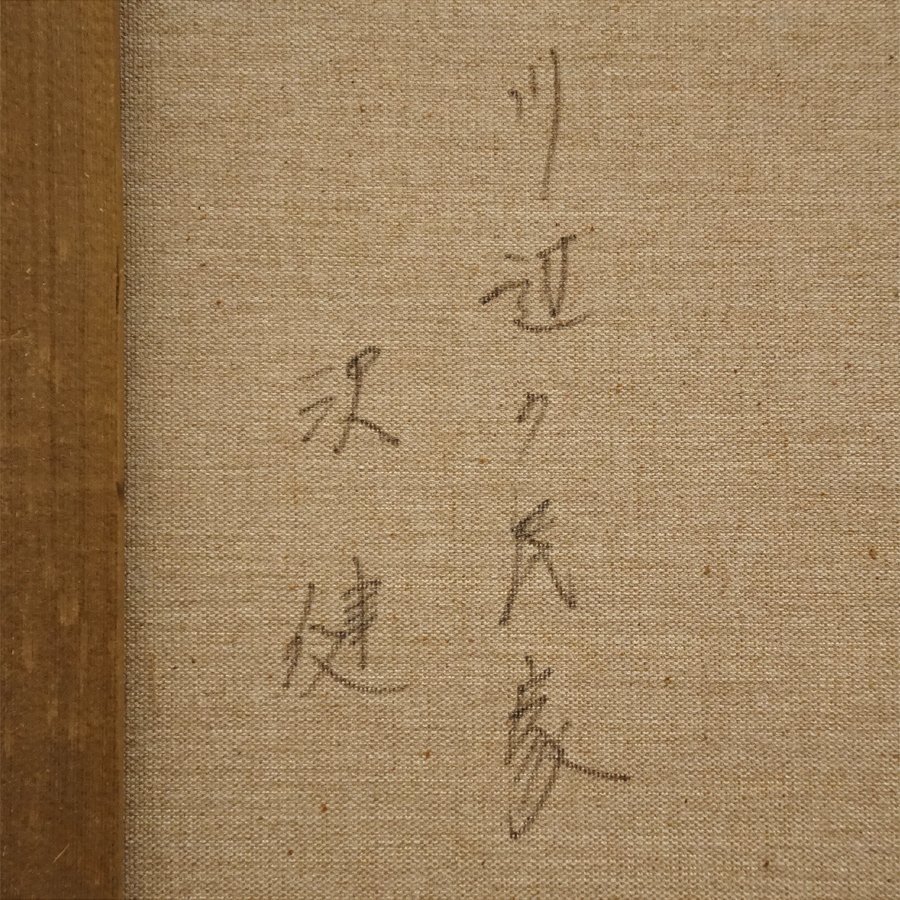 川辺ノ民家
沢健